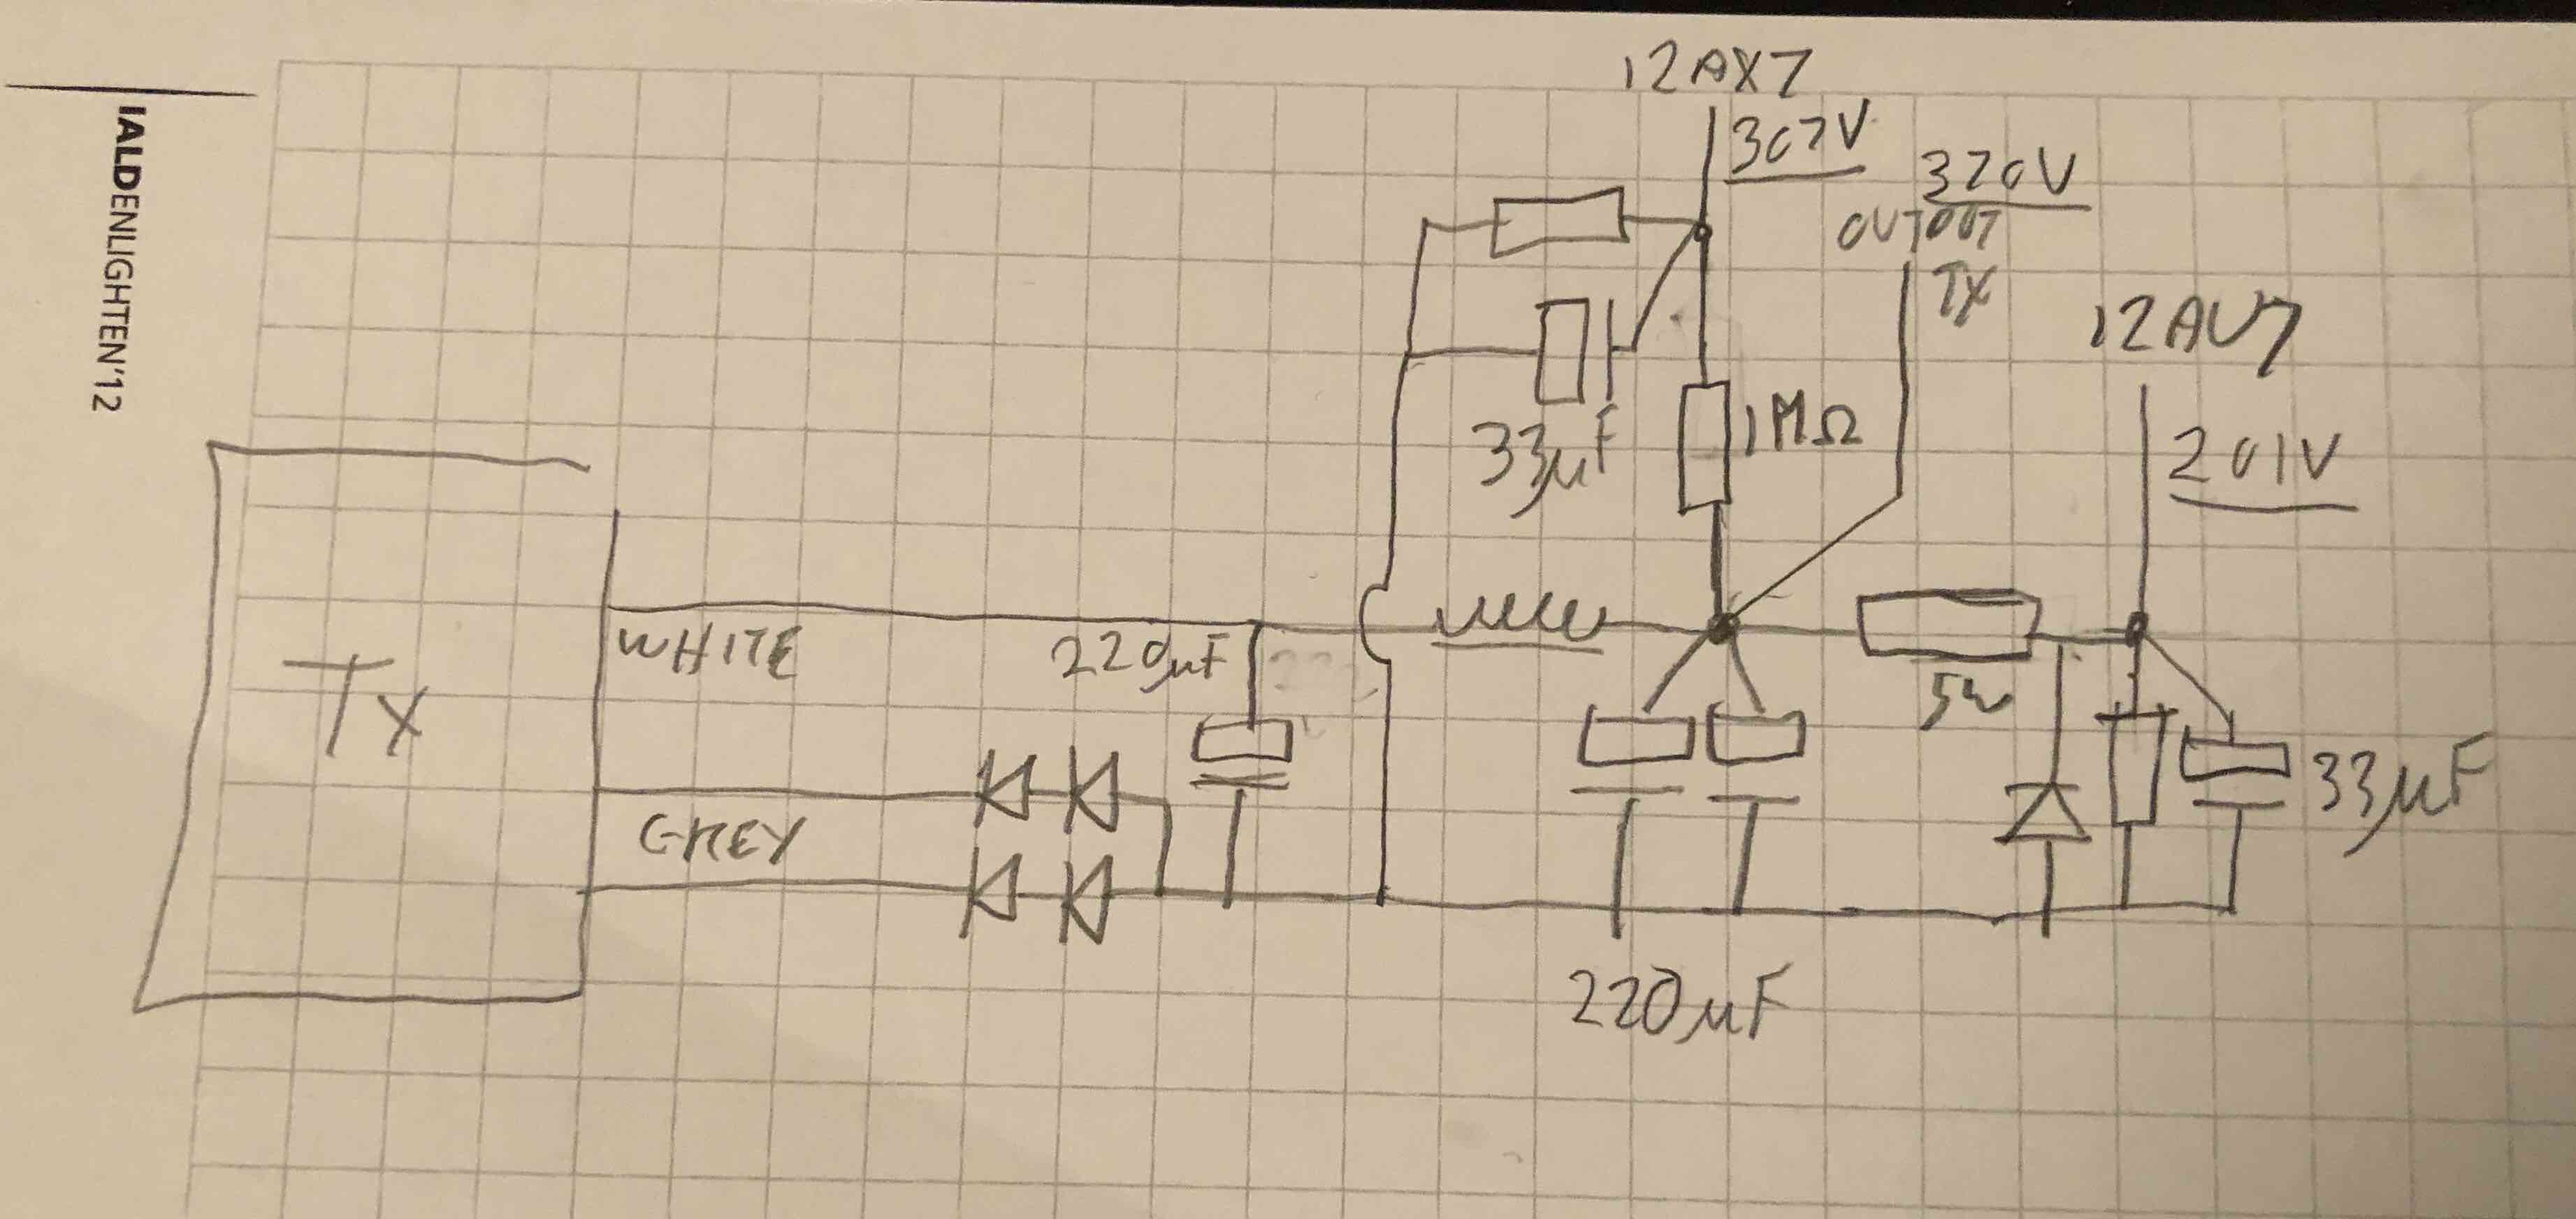 IALDENLIGHTEN'12
12AX7
307V
320V
OUTPUT
TX
12AU7
201V
33µF
1MΩ
Tx
WHITE
220µF
GREY
5W
33µF
220µF